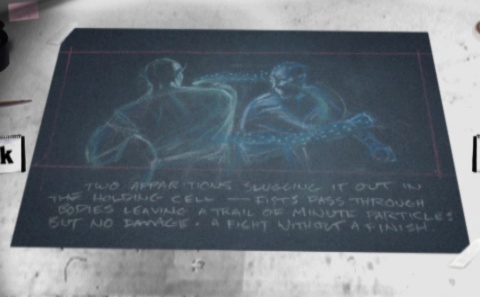 TWO APPARITIONS SLUGGING IT OUT IN
THE HOLDING CELL — FISTS PASS THROUGH
BODIES LEAVING A TRAIL OF MINUTE PARTICLES
BUT NO DAMAGE. A FIGHT WITHOUT A FINISH.
k